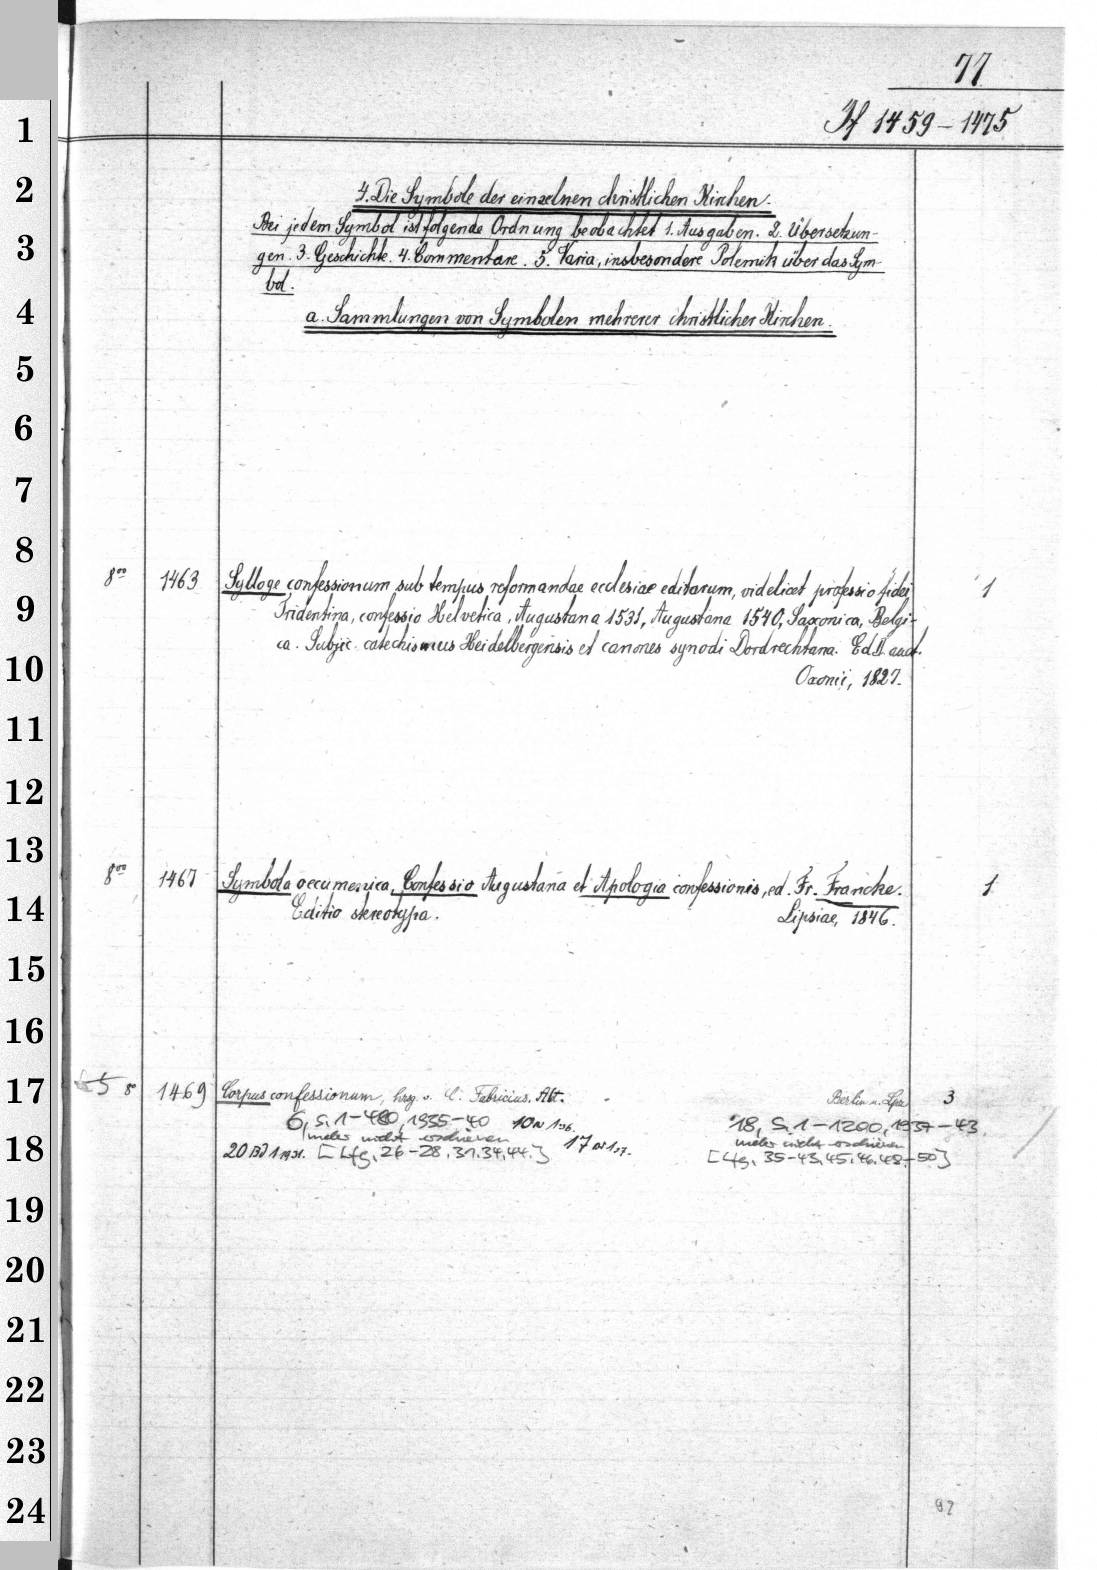 77
If 1459-1475
4. Die Symbole der einzelnen christlichen Kirchen.
Bei jedem Symbol ist folgende Ordnung beobachtet 1. Ausgaben. 2. Übersetzun-
gen. 3. Geschichte. 4. Commentare. 5. Varia, insbesondere Polemik über das Sym-
bol.
a. Sammlungen von Symbolen mehrerer christlicher Kirchen.
8°° 1463 Sylloge confessionum sub tempus reformandae ecclesiae editarum, videlicet professio fidei 1
Tridentina, confessio Helvetica, Augustana 1531, Augustana 1540, Saxonica, Belgi-
ca. Subjic. catechismus Heidelbergensis et canones synodi Dordrechtana. Ed. II. auct.
Oxonii, 1827.
8°° 1467 Symbola oecumenica, Confessio Augustana et Apologia confessionis, ed. Fr. Francke. 1
Editio stereotypa. Lipsiae, 1846.
8° 1469 Corpus confessionum, hrsg. v. C. Fabricius. Abt. Berlin u. Lpz. 3
6, S. 1-480, 1935-40 10 1,36. 18, S. 1-1200, 1937-43.
mehr nicht erschienen mehr nicht erschienen
20 Bd 1 1931. [Lfg. 26-28, 31, 34, 44.] 17 1,37. [Lfg. 35-43, 45, 46, 48-50]
92
1
2
3
4
5
6
7
8
9
10
11
12
13
14
15
16
17
18
19
20
21
22
23
24